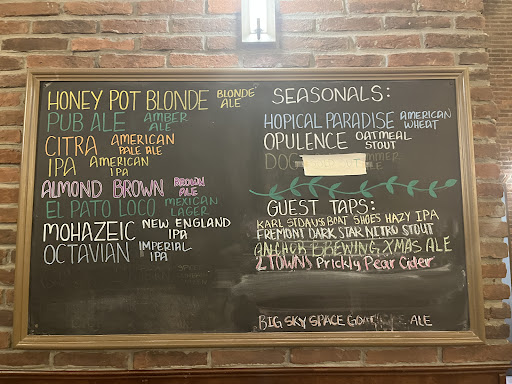 HONEY POT BLONDE BLONDE ALE
PUB ALE AMBER ALE
CITRA AMERICAN PALE ALE
IPA AMERICAN IPA
ALMOND BROWN BROWN ALE
EL PATO LOCO MEXICAN LAGER
MOHAZEIC NEW ENGLAND IPA
OCTAVIAN IMPERIAL IPA
SEASONALS:
HOPICAL PARADISE AMERICAN WHEAT
OPULENCE OATMEAL STOUT
DOG
GUEST TAPS:
KARL STRAUSS BOAT SHOES HAZY IPA
FREMONT DARK STAR NITRO STOUT
ANCHOR BREWING XMAS ALE
2 TOWNS Prickly Pear Cider
BIG SKY SPACE ALE